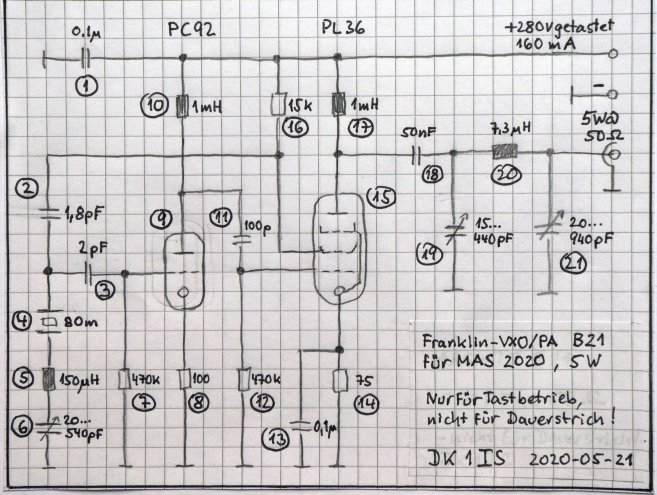 0.1µ
PC92
PL36
+280V getastet
160 mA
①
⑩
1mH
15k
⑯
1mH
⑰
50nF
⑱
7,3µH
⑳
-
5W@
50Ω
②
1,8pF
⑨
⑪
100p
⑮
2pF
③
15...
440pF
⑲
20...
940pF
㉑
④
80m
⑤
150µH
470k
⑦
100
⑧
470k
⑫
75
⑭
⑥
20...
540pF
⑬
0,1µ
Franklin-VXO/PA B21
für MAS 2020, 5W
Nur für Tastbetrieb,
nicht für Dauerstrich!
DK1IS 2020-05-21